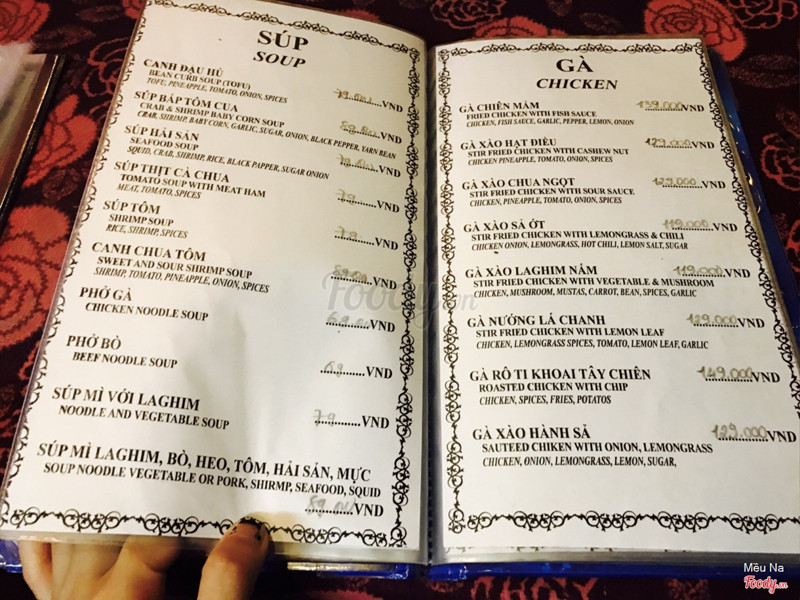 SÚP
SOUP
CANH ĐẬU HỦ
BEAN CURB SOUP (TOFU)
TOFU, PINEAPPLE, TOMATO, ONION, SPICES
VND
SÚP BẮP TÔM CUA
CRAB & SHRIMP BABY CORN SOUP
CRAB, SHRIMP, BABY CORN, GARLIC, SUGAR, ONION, BLACK PEPPER, YARN BEAN
VND
SÚP HẢI SẢN
SEAFOOD SOUP
SQUID, CRAB, SHRIMP, RICE, BLACK PAPPER, SUGAR ONION
VND
SÚP THỊT CÀ CHUA
TOMATO SOUP WITH MEAT HAM
MEAT, TOMATO, SPICES
79 VND
SÚP TÔM
SHRIMP SOUP
RICE, SHRIMP, SPICES
79 VND
CANH CHUA TÔM
SWEET AND SOUR SHRIMP SOUP
SHRIMP, TOMATO, PINEAPPLE, ONION, SPICES
VND
PHỞ GÀ
CHICKEN NOODLE SOUP
VND
PHỞ BÒ
BEEF NOODLE SOUP
69 VND
SÚP MÌ VỚI LAGHIM
NOODLE AND VEGETABLE SOUP
79 VND
SÚP MÌ LAGHIM, BÒ, HEO, TÔM, HẢI SẢN, MỰC
SOUP NOODLE VEGETABLE OR PORK, SHIRMP, SEAFOOD, SQUID
VND
GÀ
CHICKEN
GÀ CHIÊN MẮM 139.000 VND
FRIED CHICKEN WITH FISH SAUCE
CHICKEN, FISH SAUCE, GARLIC, PEPPER, LEMON, ONION
GÀ XÀO HẠT ĐIỀU 129.000 VND
STIR FRIED CHICKEN WITH CASHEW NUT
CHICKEN PINEAPPLE, TOMATO, ONION, SPICES
GÀ XÀO CHUA NGỌT 129.000 VND
STIR FRIED CHICKEN WITH SOUR SAUCE
CHICKEN, PINEAPPLE, TOMATO, ONION, SPICES
GÀ XÀO SẢ ỚT 119.000 VND
STIR FRIED CHICKEN WITH LEMONGRASS & CHILI
CHICKEN ONION, LEMONGRASS, HOT CHILI, LEMON SALT, SUGAR
GÀ XÀO LAGHIM NẤM 119.000 VND
STIR FRIED CHICKEN WITH VEGETABLE & MUSHROOM
CHICKEN, MUSHROOM, MUSTAS, CARROT, BEAN, SPICES, GARLIC
GÀ NƯỚNG LÁ CHANH 129.000 VND
STIR FRIED CHICKEN WITH LEMON LEAF
CHICKEN, LEMONGRASS SPICES, TOMATO, LEMON LEAF, GARLIC
GÀ RÔ TI KHOAI TÂY CHIÊN 149.000 VND
ROASTED CHICKEN WITH CHIP
CHICKEN, SPICES, FRIES, POTATOS
GÀ XÀO HÀNH SẢ 129.000 VND
SAUTEED CHIKEN WITH ONION, LEMONGRASS
CHICKEN, ONION, LEMONGRASS, LEMON, SUGAR,
Foody.vn
Mều Na
Foody.vn